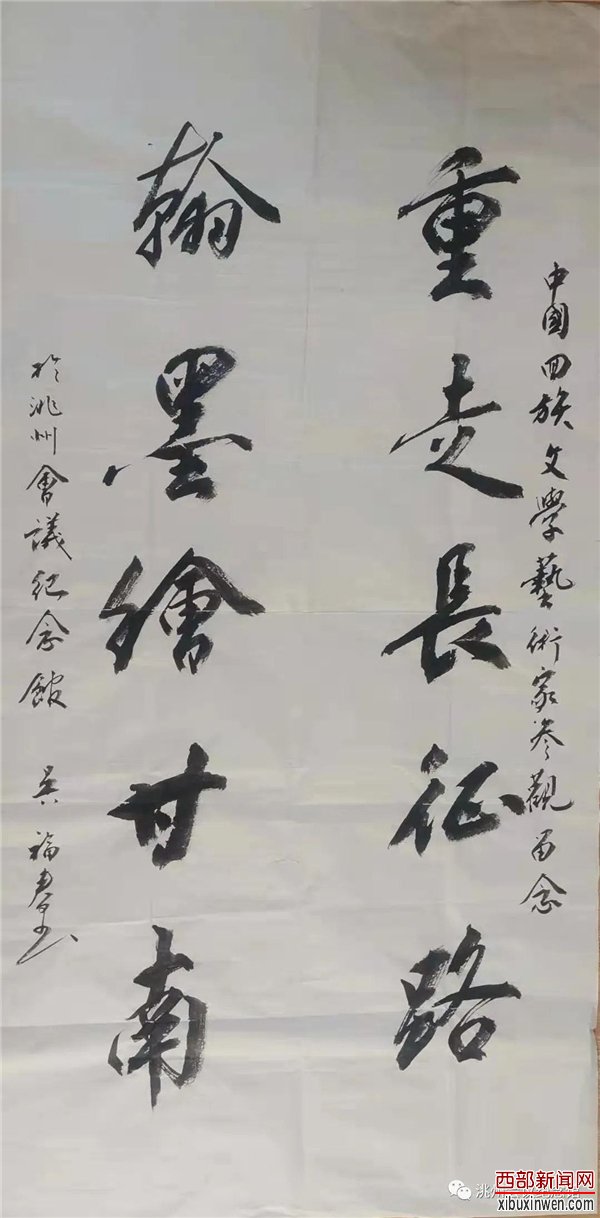 中國回族文學藝術家參觀留念
重走長征路
翰墨繪甘南
於洮州會議紀念館 吳福
洮州
西部新闻网
xibuxinwen.com